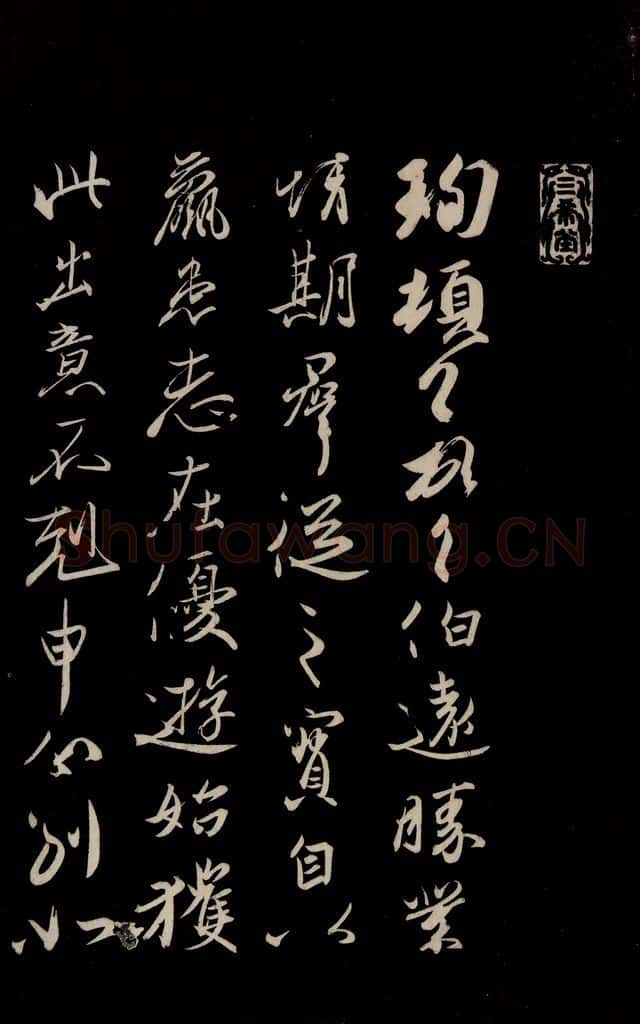 三希堂
珣頓首頓首伯遠勝業
情期羣從之寶自以
羸患志在優遊始獲
此出意不剋申分別如
Shufawang.CN